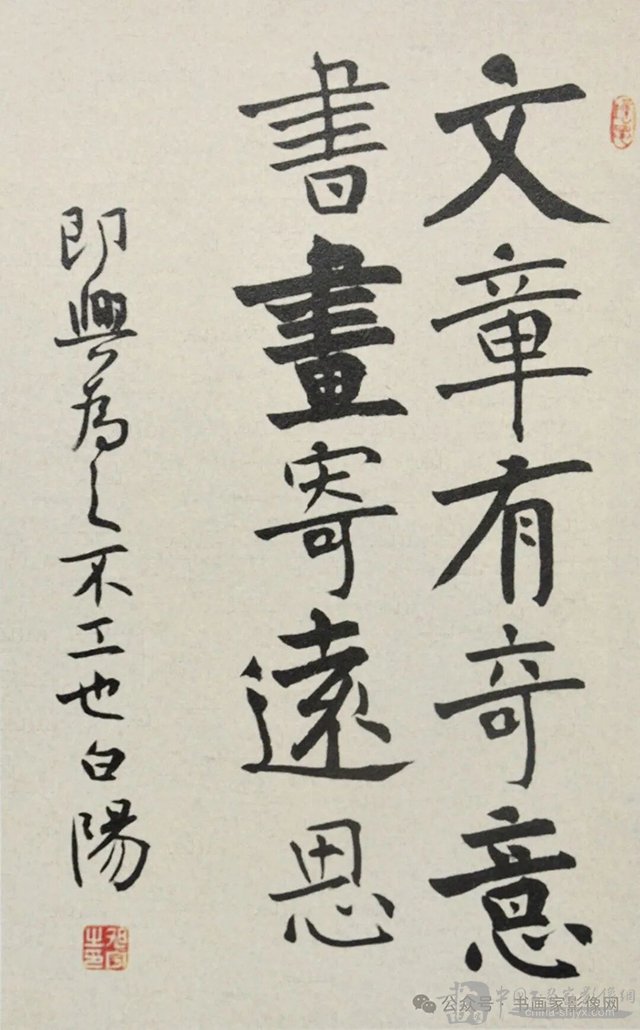 文章有奇意
書畫寄遠思
即興為之不工也白陽
公众号·书画家影像网
china-shjyx.com